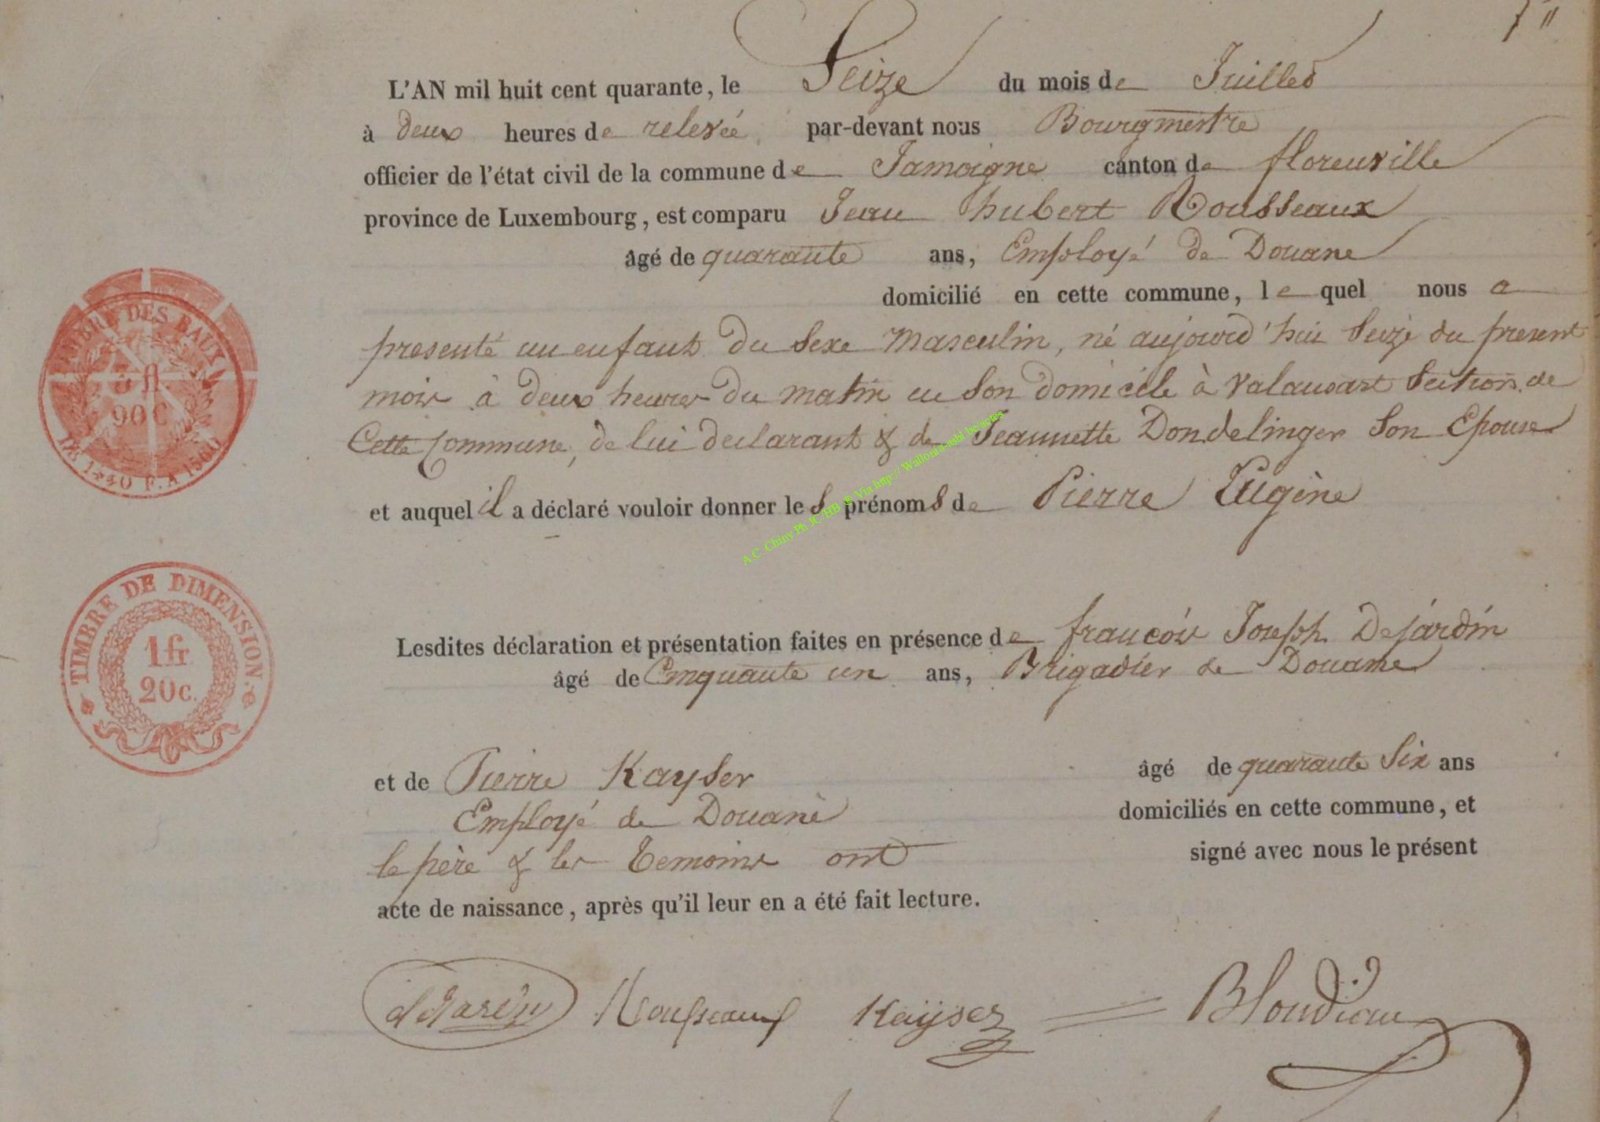 L'AN mil huit cent quarante, le Seize du mois de Juillet
à deux heures de relevée par-devant nous Bourgmestre
officier de l'état civil de la commune de Jamoigne canton de florenville
province de Luxembourg, est comparu Jean hubert Rousseaux
âgé de quarante ans, Employé de Douane
domicilié en cette commune, le quel nous a
presenté un enfant du Sexe Masculin, né aujourd'hui Seize du present
mois à deux heures du matin en Son domicile à Valansart Section de
Cette Commune, de lui declarant & de Jeannette Dondelinger Son Epouse
et auquel il a déclaré vouloir donner les prénoms de Pierre Eugène
A.C. Chiny Ph.R.
Lesdites déclaration et présentation faites en présence de françois Joseph Dejardin
âgé de Cinquante un ans, Brigadier de Douane
et de Pierre Kayser âgé de quarante Six ans
Employé de Douane domiciliés en cette commune, et
le père & les temoins ont signé avec nous le présent
acte de naissance, après qu'il leur en a été fait lecture.
Rousseaux Kayser Blondiau
TIMBRE DES
3 fl
90 C
TIMBRE DE DIMENSION.
1fr
20c.